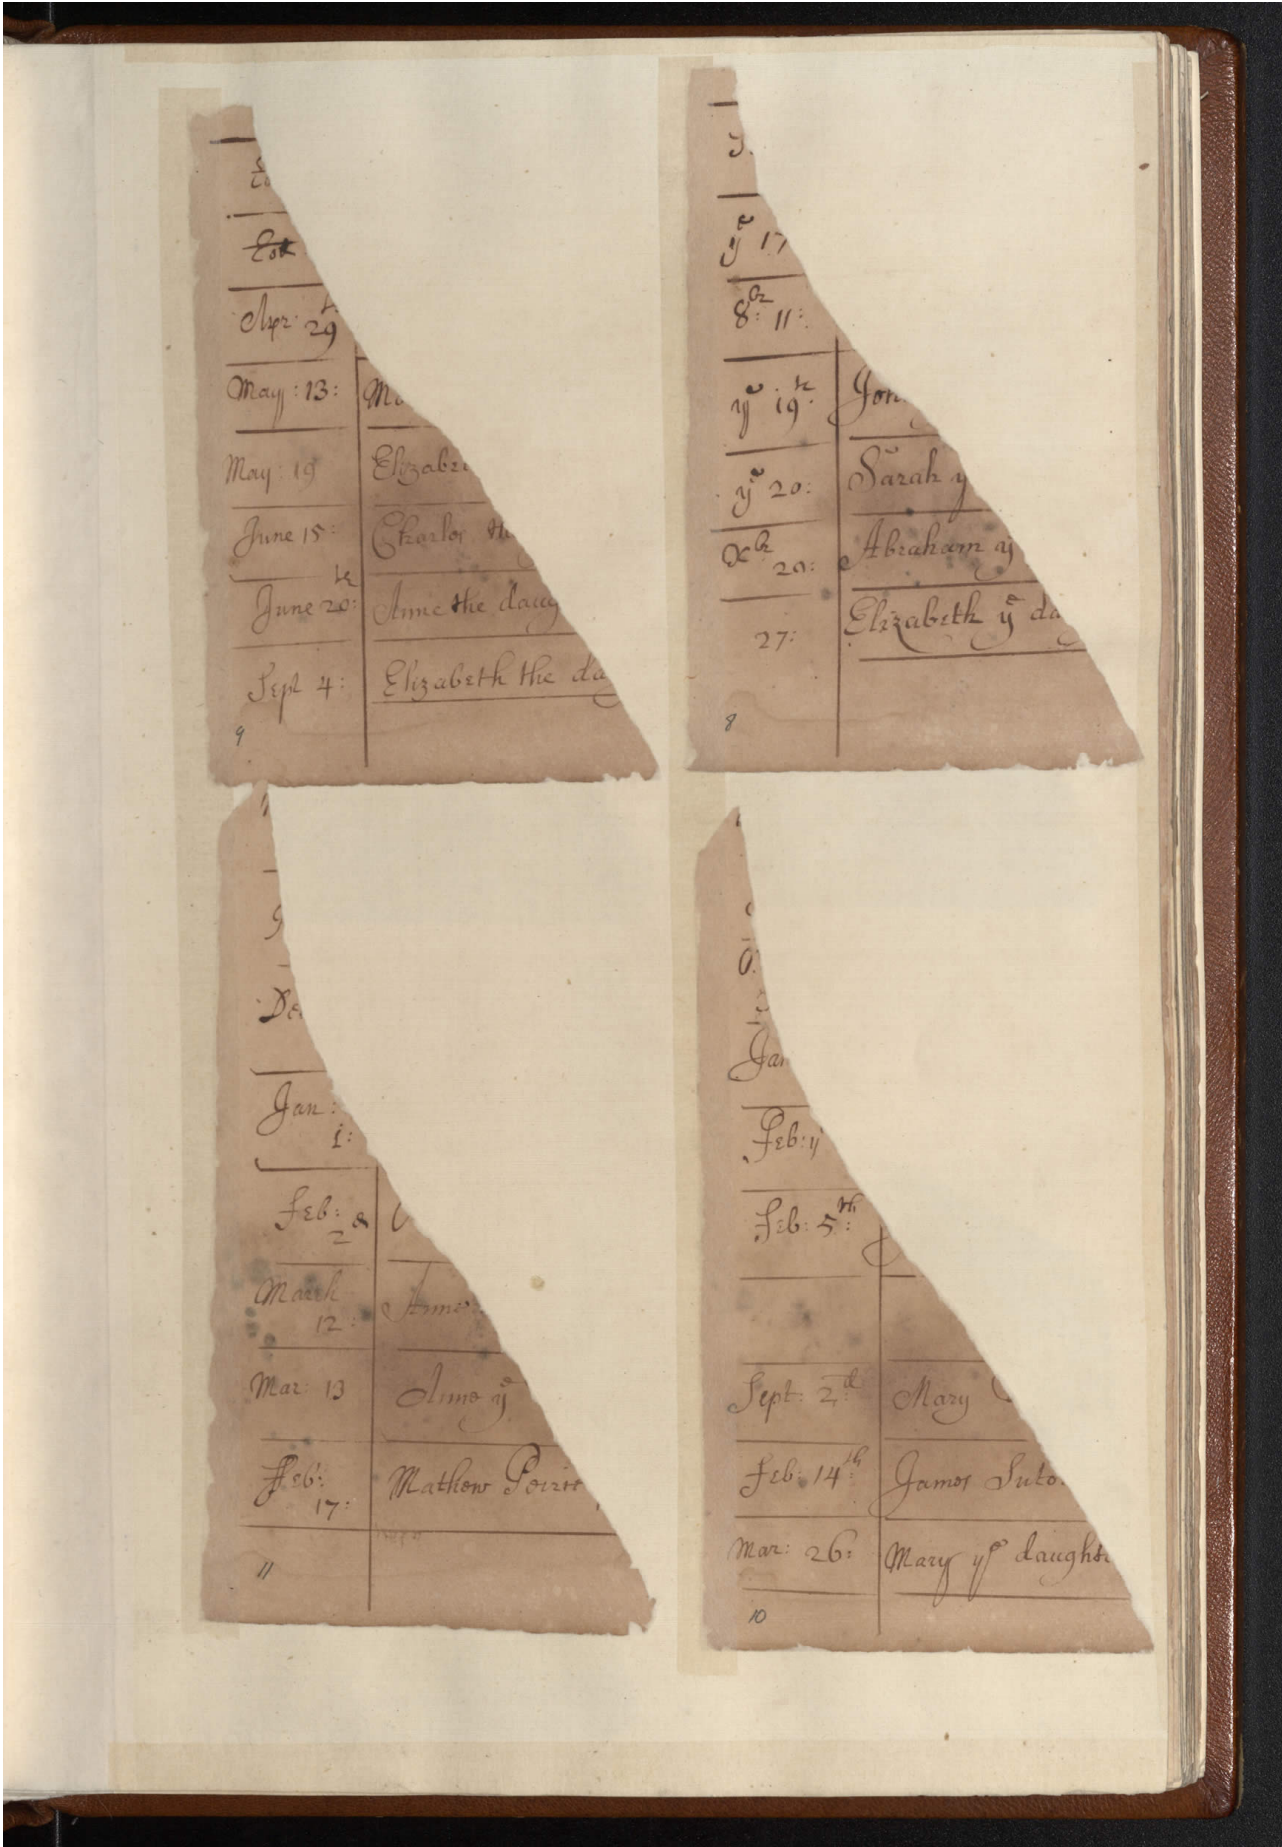 Apr: 29
May: 13: Ma
May: 19 Elizabe
June 15: Charles the
June 20: Anne the daug
Sept 4: Elizabeth the da
9
yͤ 17
8ᵇʳ: 11:
yͤ 19ᵗʰ Jon
yͤ 20: Sarah y
Xᵇʳ 20: Abraham yͤ
27: Elizabeth yͤ da
8
De
Jan: 1:
Feb: 2
March 12: Anne
Mar: 13 Anne yͤ
Feb: 17: Mathew
11
Jan
Feb: y
Feb: 5ᵗʰ:
Sept: 2ᵈ: Mary
Feb: 14ᵗʰ: James Suto
Mar: 26: Mary yͤ daught
10